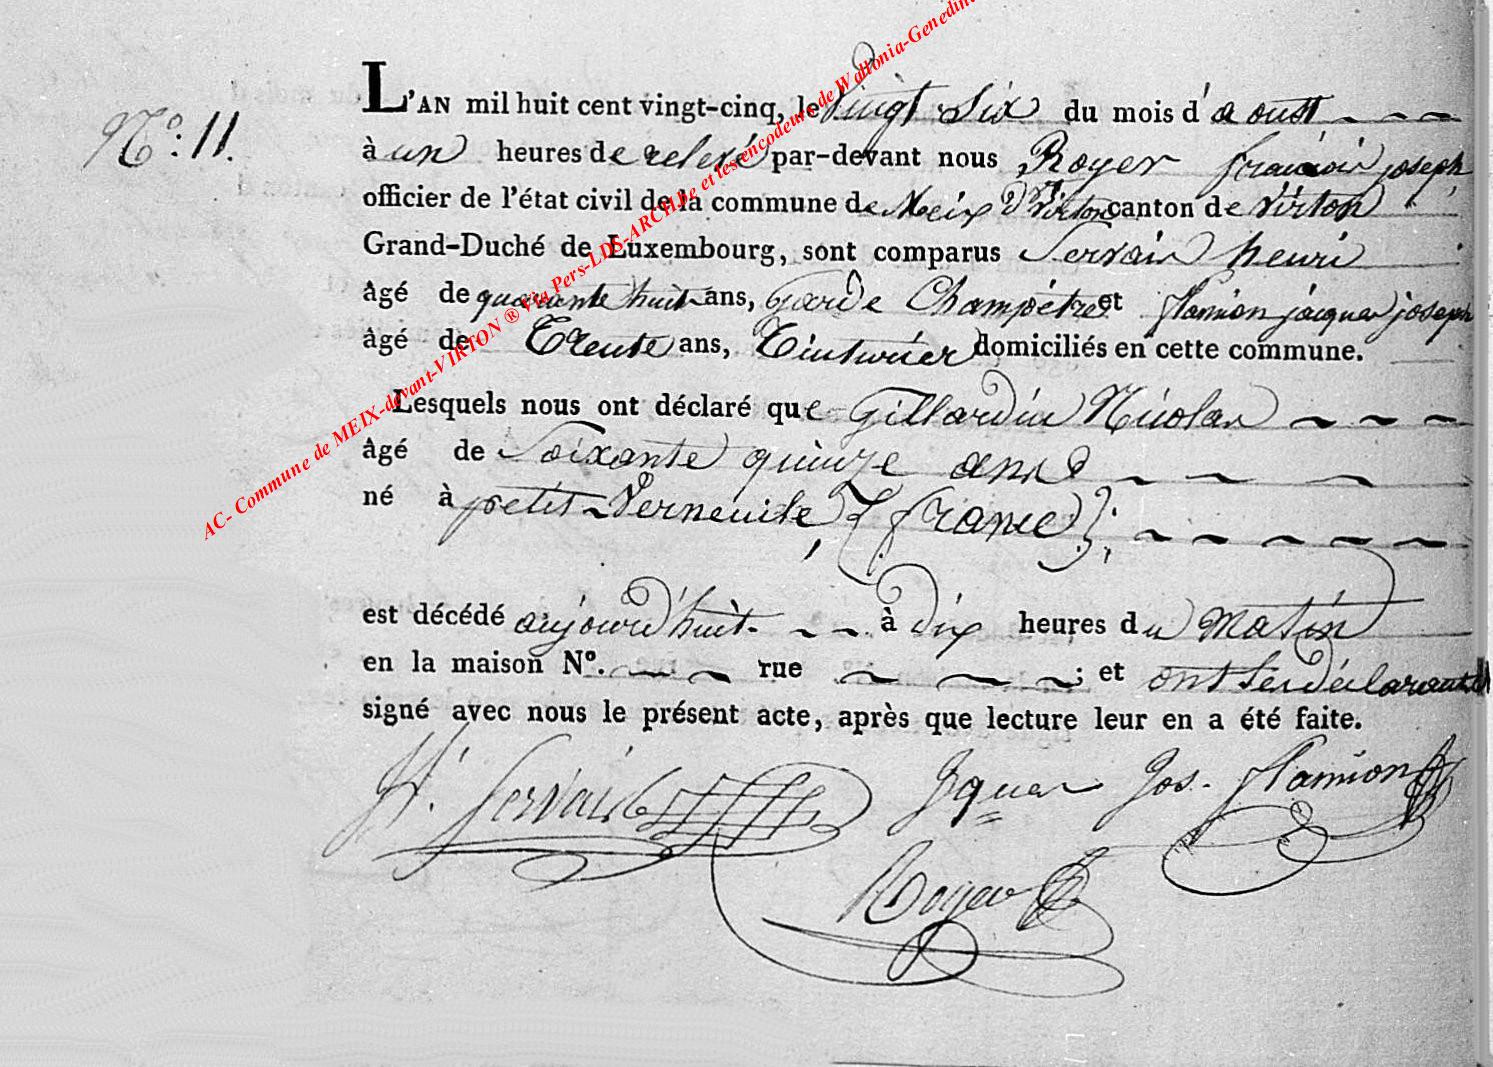 AC- Commune de MEIX-devant-VIRTON ® Via Pers-LDS-ARCH.be et les encodeurs de Wallonia-Genedin
N.° 11.
L'AN mil huit cent vingt-cinq, le Vingt Six du mois d'aoust
à un heures de relevé par-devant nous Royer françois joseph
officier de l'état civil de la commune de Meix d' Virton canton de Virton
Grand-Duché de Luxembourg, sont comparus Servais henri
âgé de quarante huit ans, Garde Champêtre et flamion jacques joseph
âgé de Trente ans, Tinturier domiciliés en cette commune.
Lesquels nous ont déclaré que Gillardin Nicolas
âgé de Soixante quinze ans
né à petit-Verneuile, { france };
est décédé aujourd'huit à dix heures du Matin
en la maison N°. rue ; et ont les déclarants
signé avec nous le présent acte, après que lecture leur en a été faite.
H. Servais Jques Jos. flamion
Royer